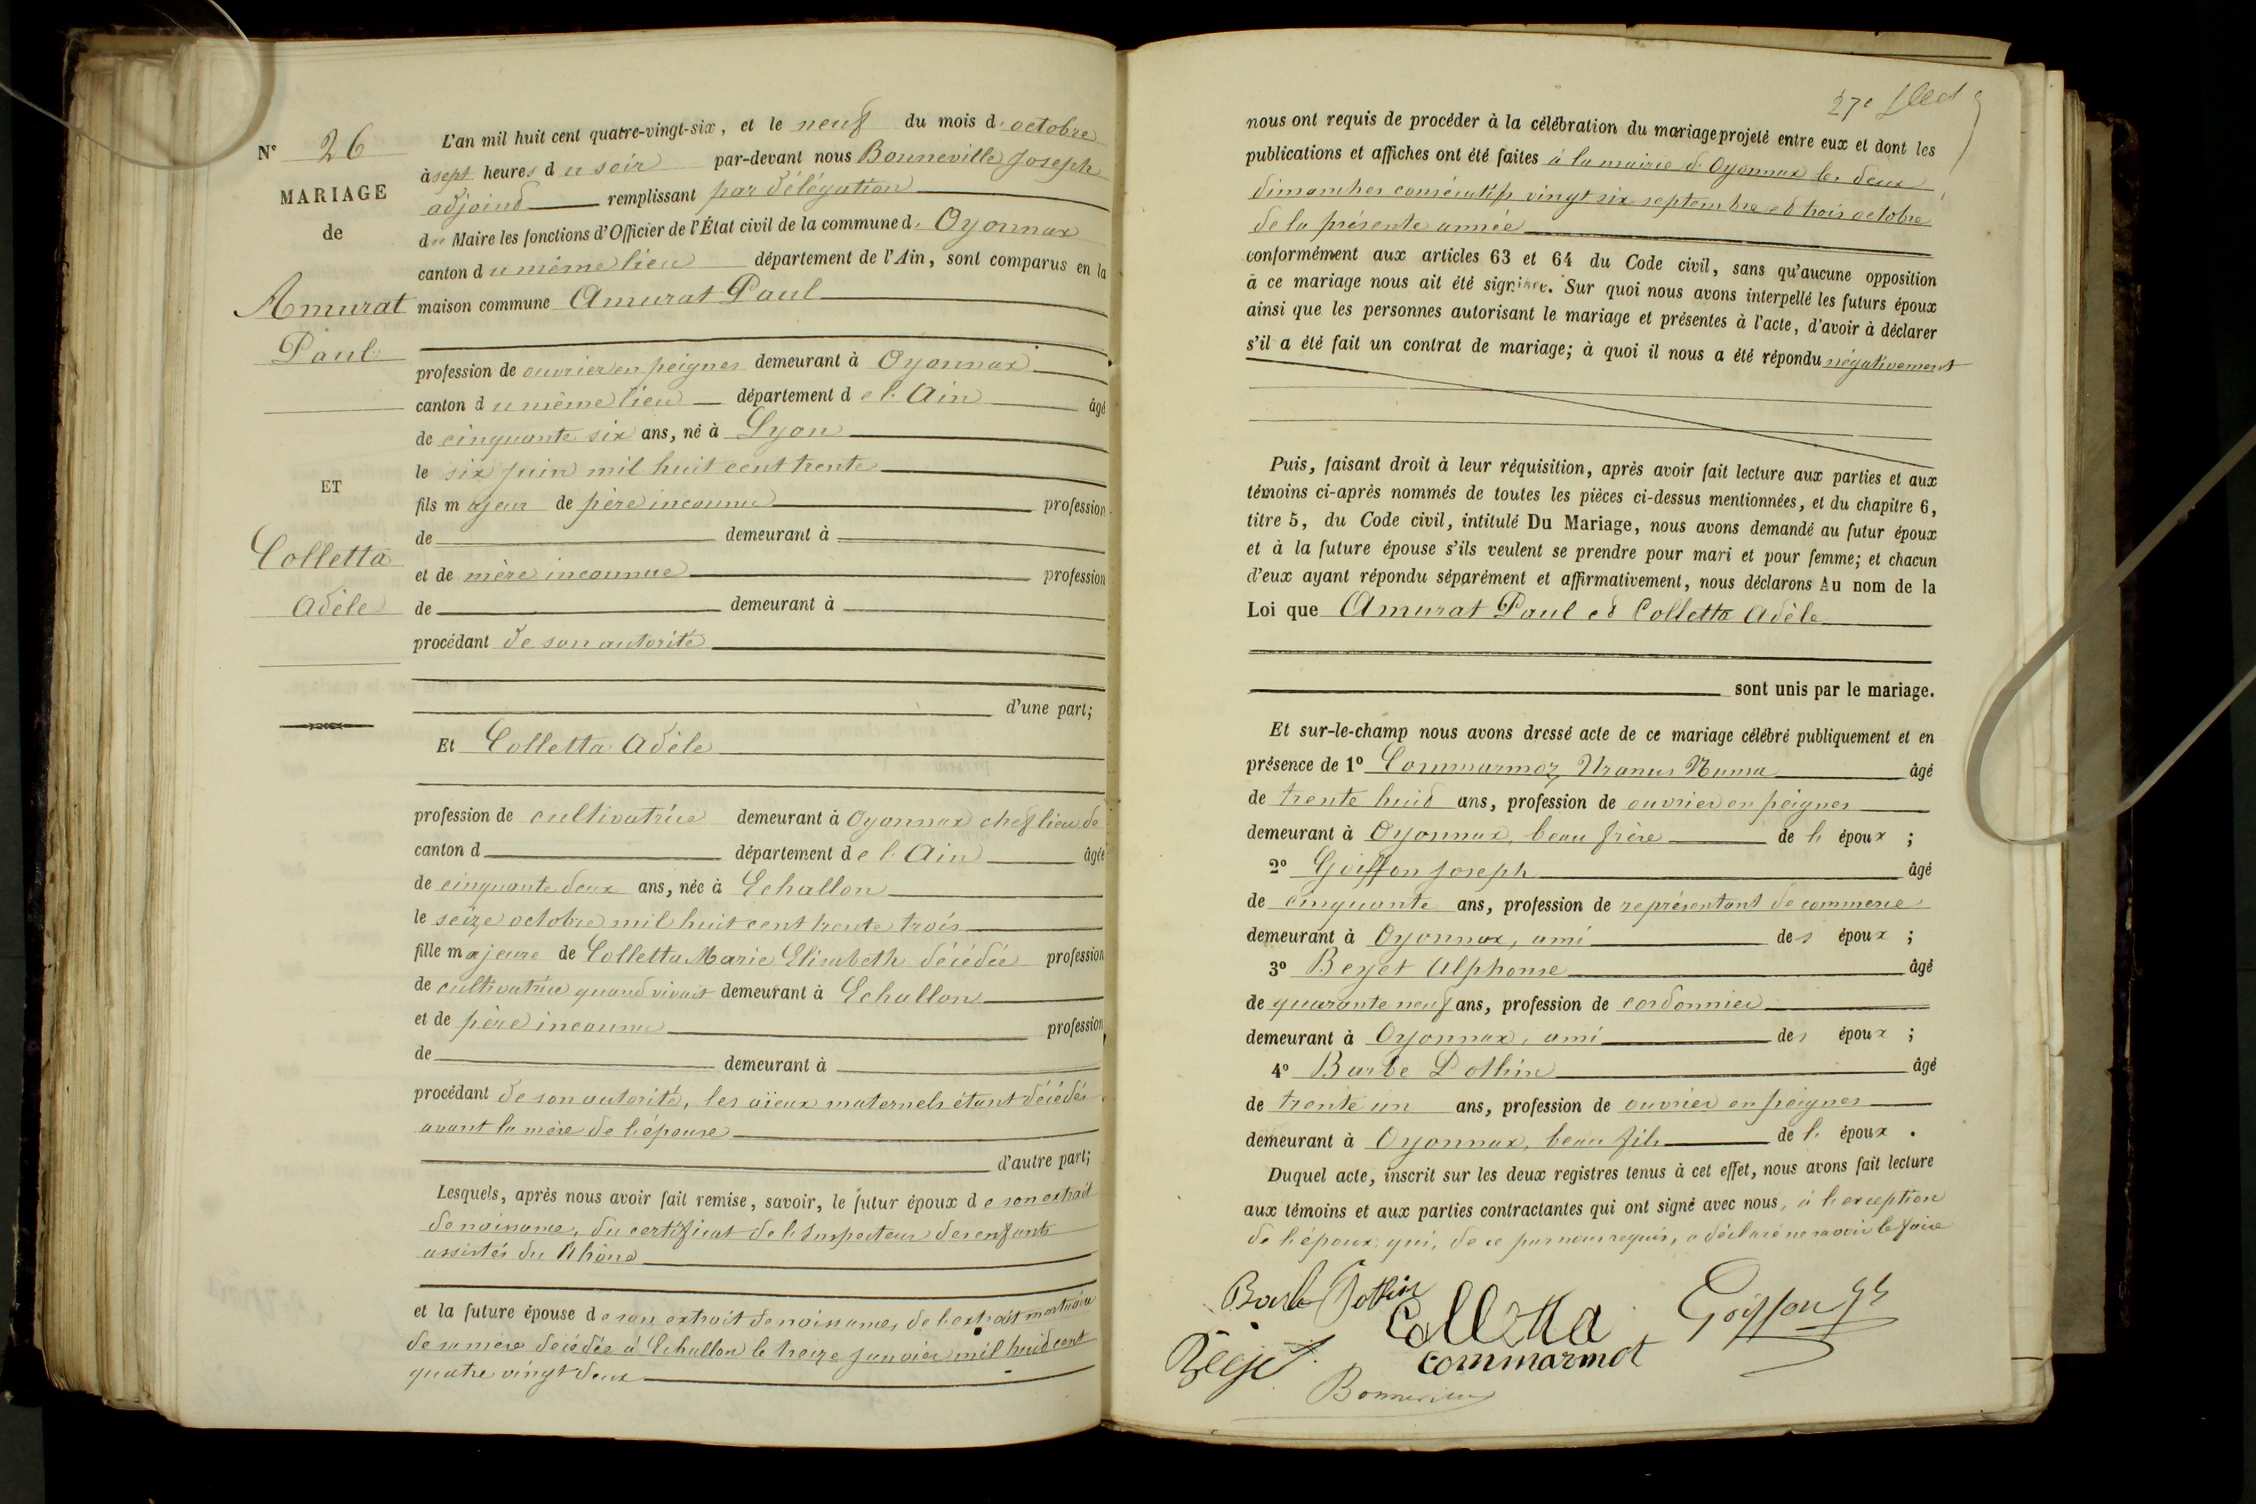 N° 26
MARIAGE
de
Amurat
Paul
ET
Colletta
Adèle
L'an mil huit cent quatre-vingt-six, et le neuf du mois d'octobre
à sept heures du soir par-devant nous Bonneville Joseph
adjoint remplissant par délégation
du Maire les fonctions d'Officier de l'État civil de la commune d'Oyonnax
canton du même lieu département de l'Ain, sont comparus en la
maison commune Amurat Paul
profession de ouvrier en peignes demeurant à Oyonnax
canton du même lieu département de l'Ain âgé
de cinquante six ans, né à Lyon
le six juin mil huit cent trente
fils majeur de père inconnu profession
de demeurant à
et de mère inconnue profession
de demeurant à
procédant de son autorité
d'une part;
Et Colletta Adèle
profession de cultivatrice demeurant à Oyonnax chef lieu de
canton d département de l'Ain âgée
de cinquante deux ans, née à Echallon
le seize octobre mil huit cent trente trois
fille majeure de Colletta Marie Elisabeth décédée profession
de cultivatrice quand vivait demeurant à Echallon
et de père inconnu profession
de demeurant à
procédant de son autorité, les aïeux maternels étant décédés
avant la mère de l'épouse
d'autre part;
Lesquels, après nous avoir fait remise, savoir, le futur époux de son extrait
de naissance, du certificat de l'Inspecteur des enfants
assistés du Rhône
et la future épouse de son extrait de naissance, de l'extrait mortuaire
de sa mère décédée à Echallon le treize janvier mil huit cent
quatre vingt deux
27e
nous ont requis de procéder à la célébration du mariage projeté entre eux et dont les
publications et affiches ont été faites à la mairie d'Oyonnax les deux
dimanches consécutifs vingt six septembre et trois octobre
de la présente année
conformément aux articles 63 et 64 du Code civil, sans qu'aucune opposition
à ce mariage nous ait été signifiée. Sur quoi nous avons interpellé les futurs époux
ainsi que les personnes autorisant le mariage et présentes à l'acte, d'avoir à déclarer
s'il a été fait un contrat de mariage; à quoi il nous a été répondu négativement
Puis, faisant droit à leur réquisition, après avoir fait lecture aux parties et aux
témoins ci-après nommés de toutes les pièces ci-dessus mentionnées, et du chapitre 6,
titre 5, du Code civil, intitulé Du Mariage, nous avons demandé au futur époux
et à la future épouse s'ils veulent se prendre pour mari et pour femme; et chacun
d'eux ayant répondu séparément et affirmativement, nous déclarons Au nom de la
Loi que Amurat Paul et Colletta Adèle
sont unis par le mariage.
Et sur-le-champ nous avons dressé acte de ce mariage célébré publiquement et en
présence de 1° Commarmoz Uranus Numa âgé
de trente huit ans, profession de ouvrier en peignes
demeurant à Oyonnax, beau frère de l'époux ;
2° Goiffon Joseph âgé
de cinquante ans, profession de représentant de commerce
demeurant à Oyonnax, ami des époux ;
3° Beyet Alphonse âgé
de quarante neuf ans, profession de cordonnier
demeurant à Oyonnax, ami des époux ;
4° Barbe Pothin âgé
de trente un ans, profession de ouvrier en peignes
demeurant à Oyonnax, beau fils de l'époux .
Duquel acte, inscrit sur les deux registres tenus à cet effet, nous avons fait lecture
aux témoins et aux parties contractantes qui ont signé avec nous, à l'exception
de l'époux qui, de ce par nous requis, a déclaré ne savoir le faire
Barbe Pothin
Colletta
Goiffon
Béejet
Commarmot